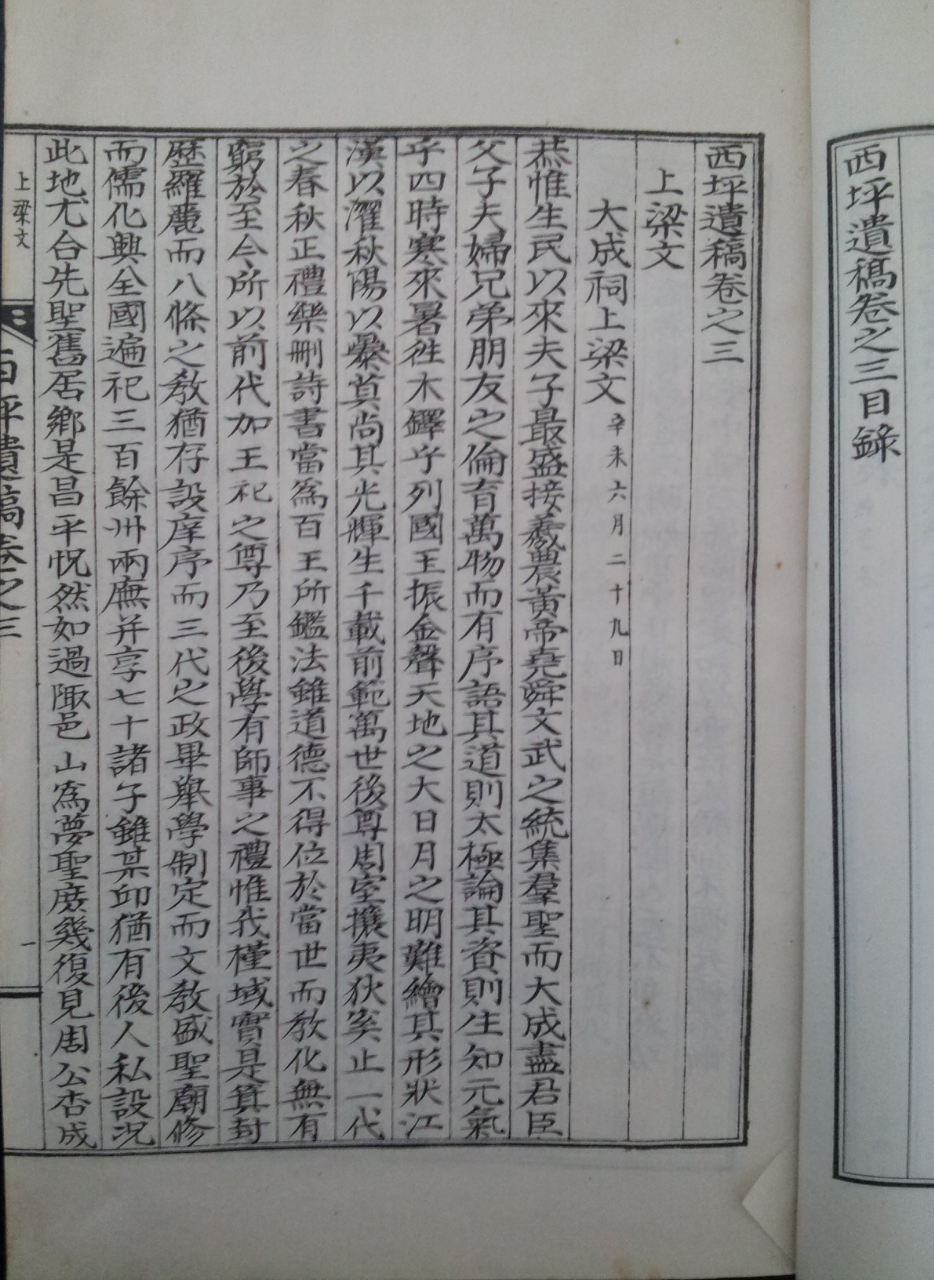 西坪遺稿卷之三目錄
西坪遺稿卷之三
上梁文
大成祠上梁文 辛未六月二十九日
恭惟生民以來夫子最盛接羲農黃帝堯舜文武之統集羣聖而大成盡君臣
父子夫婦兄弟朋友之倫育萬物而有序語其道則太極論其資則生知元氣
乎四時寒來暑徃木鐸乎列國玉振金聲天地之大日月之明難繪其形狀江
漢以濯秋陽以暴莫尚其光輝生千載前範萬世後尊周室攘夷狄奚止一代
之春秋正禮樂刪詩書當爲百王所鑑法雖道德不得位於當世而敎化無有
窮於至今所以前代加王祀之尊乃至後學有師事之禮惟我槿域實是箕封
歷羅麗而八條之敎猶存設庠序而三代之政畢擧學制定而文敎盛聖廟修
而儒化興全國遍祀三百餘州兩廡并享七十諸子雖某卬猶有後人私設况
此地尤合先聖舊居鄕是昌平怳然如過陬邑山爲夢聖庶幾復見周公杏成
上梁文
西坪遺稿卷之三
一